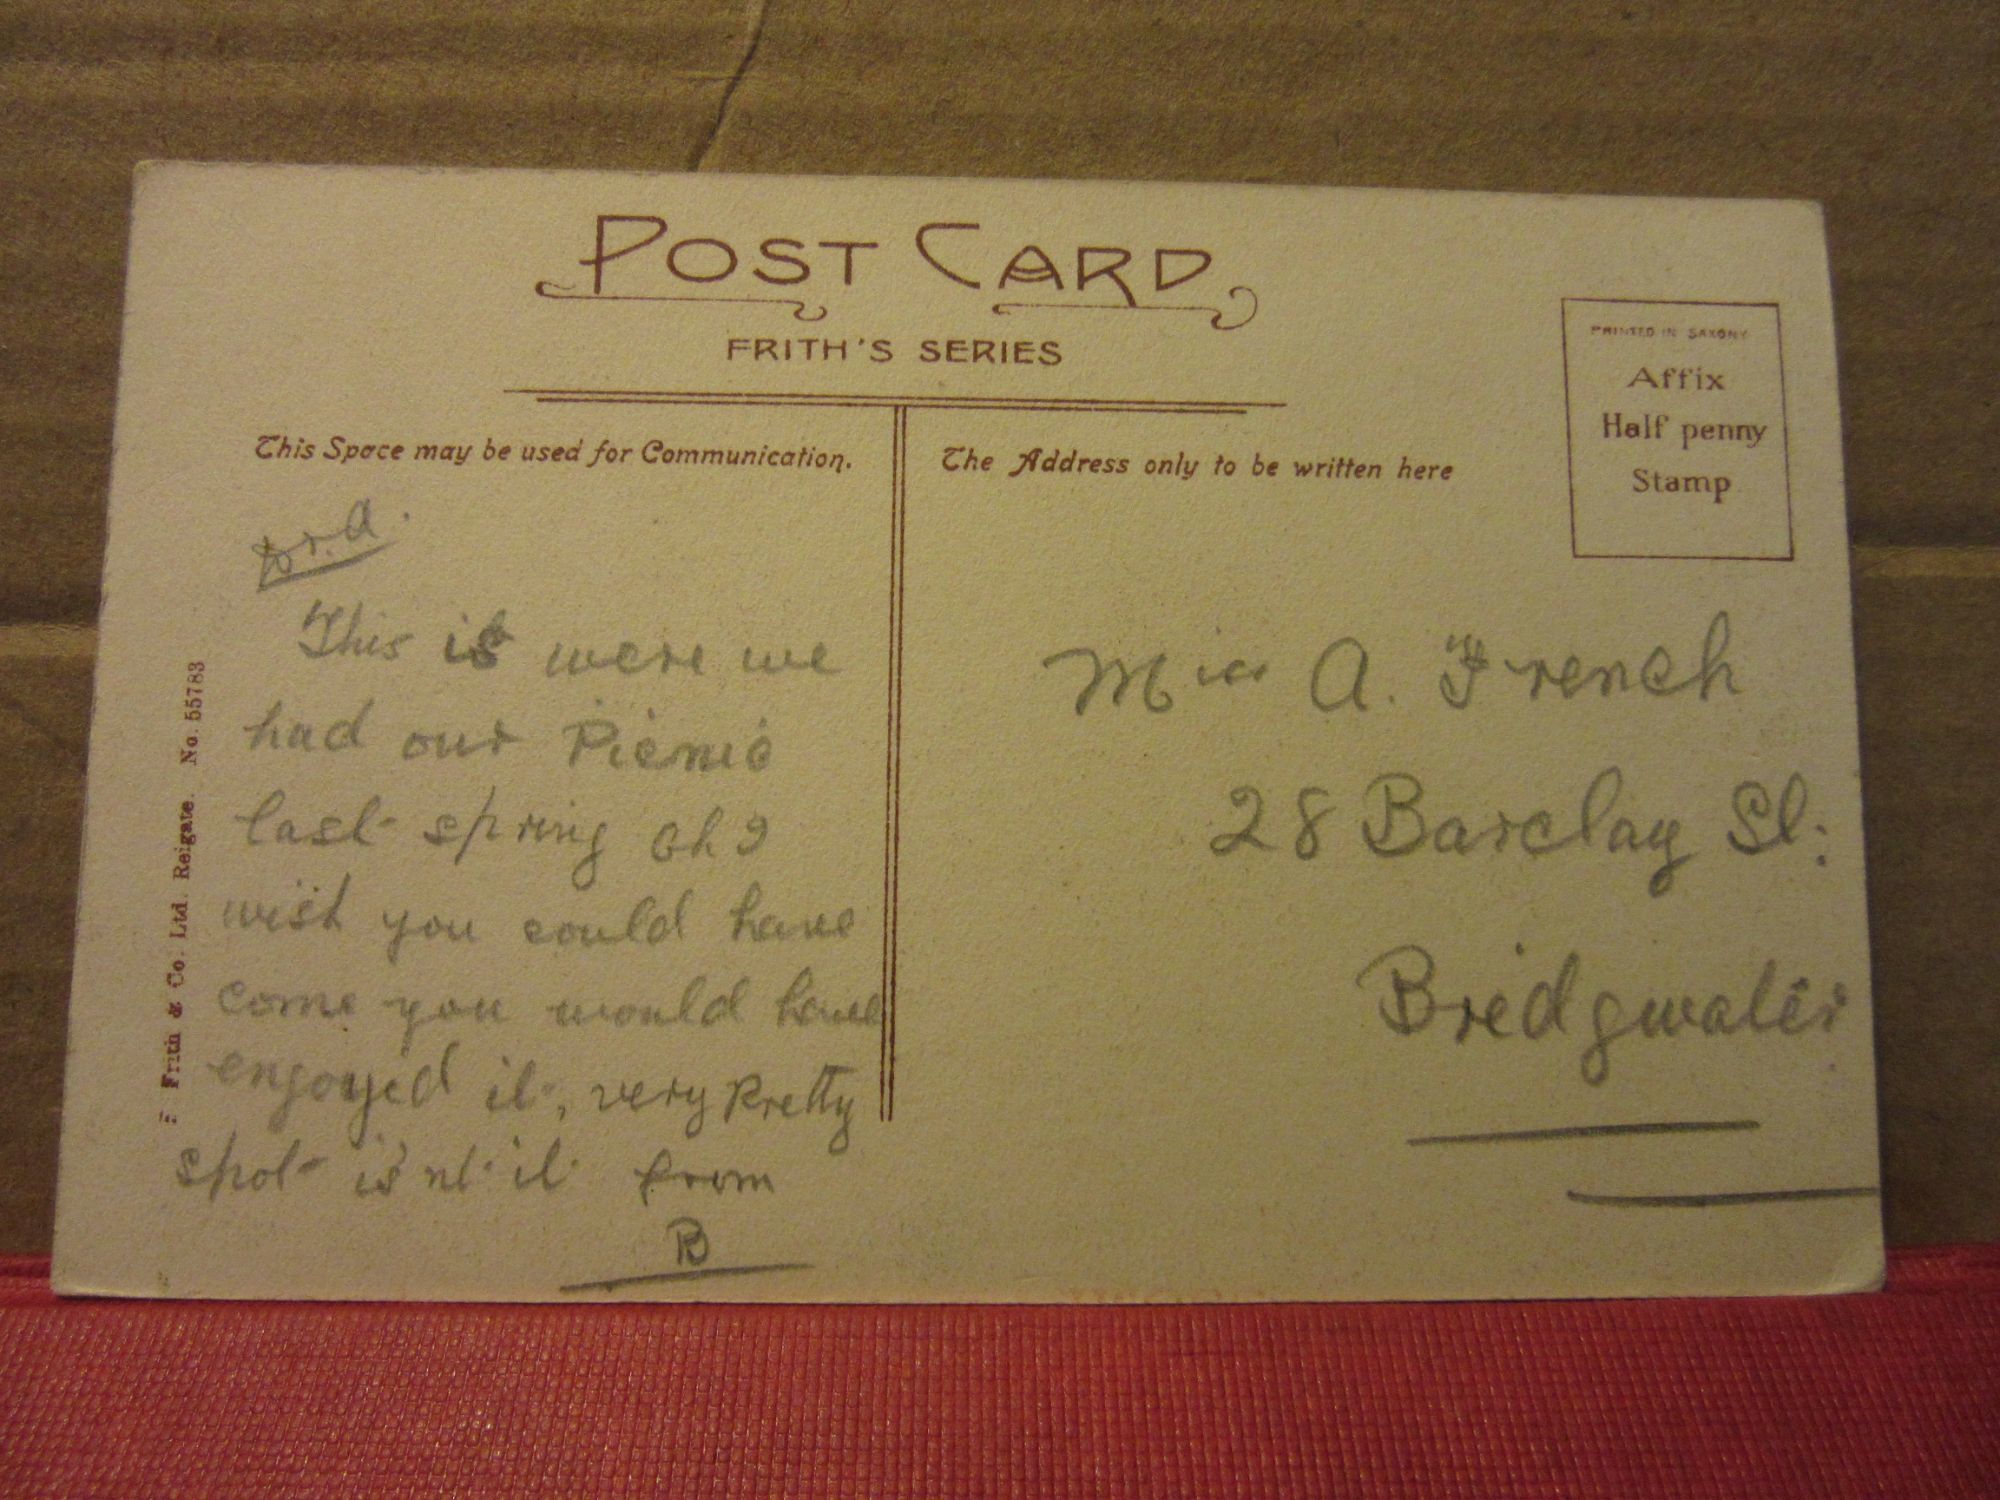 POST CARD
FRITH'S SERIES
PRINTED IN SAXONY
Affix
Half penny
Stamp
This Space may be used for Communication.
The Address only to be written here
Dr. A.
This is were we
had our Picnic
last spring oh I
wish you could have
come you would have
enjoyed it, very Pretty
spot is'nt it from
B
Miss A. French
28 Barclay St:
Bridgwater
F Frith & Co. Ltd. Reigate. No. 55783